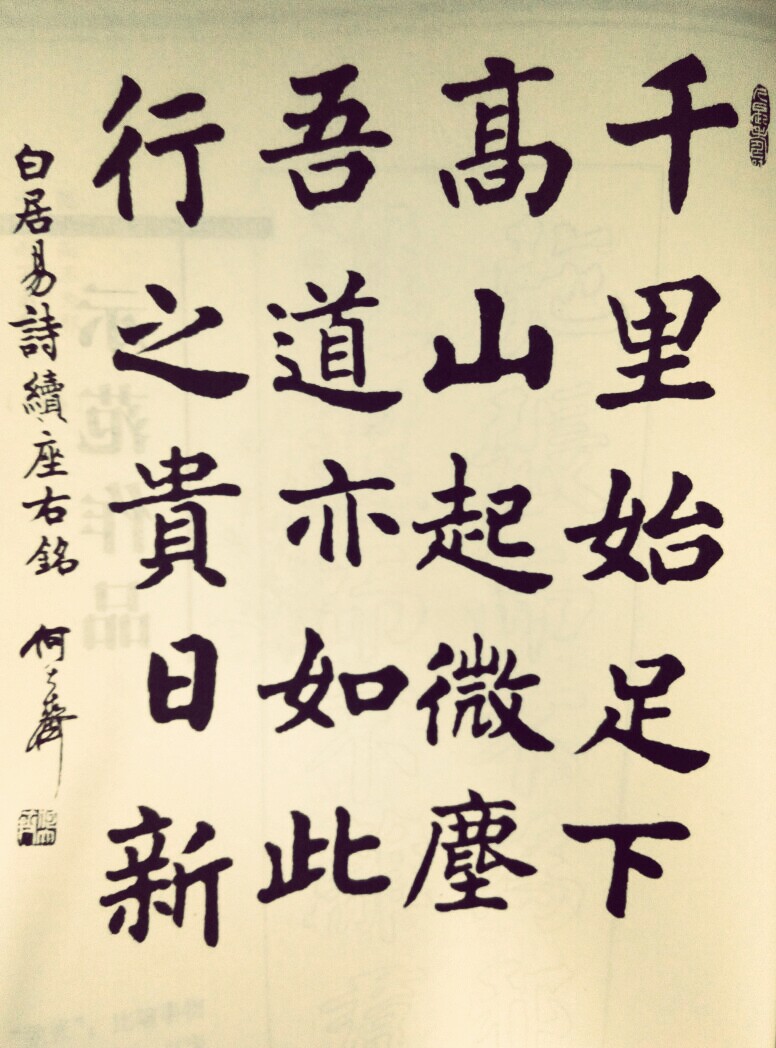 千里始足下
高山起微塵
吾道亦如此
行之貴日新
白居易詩續座右銘 何
示范作品